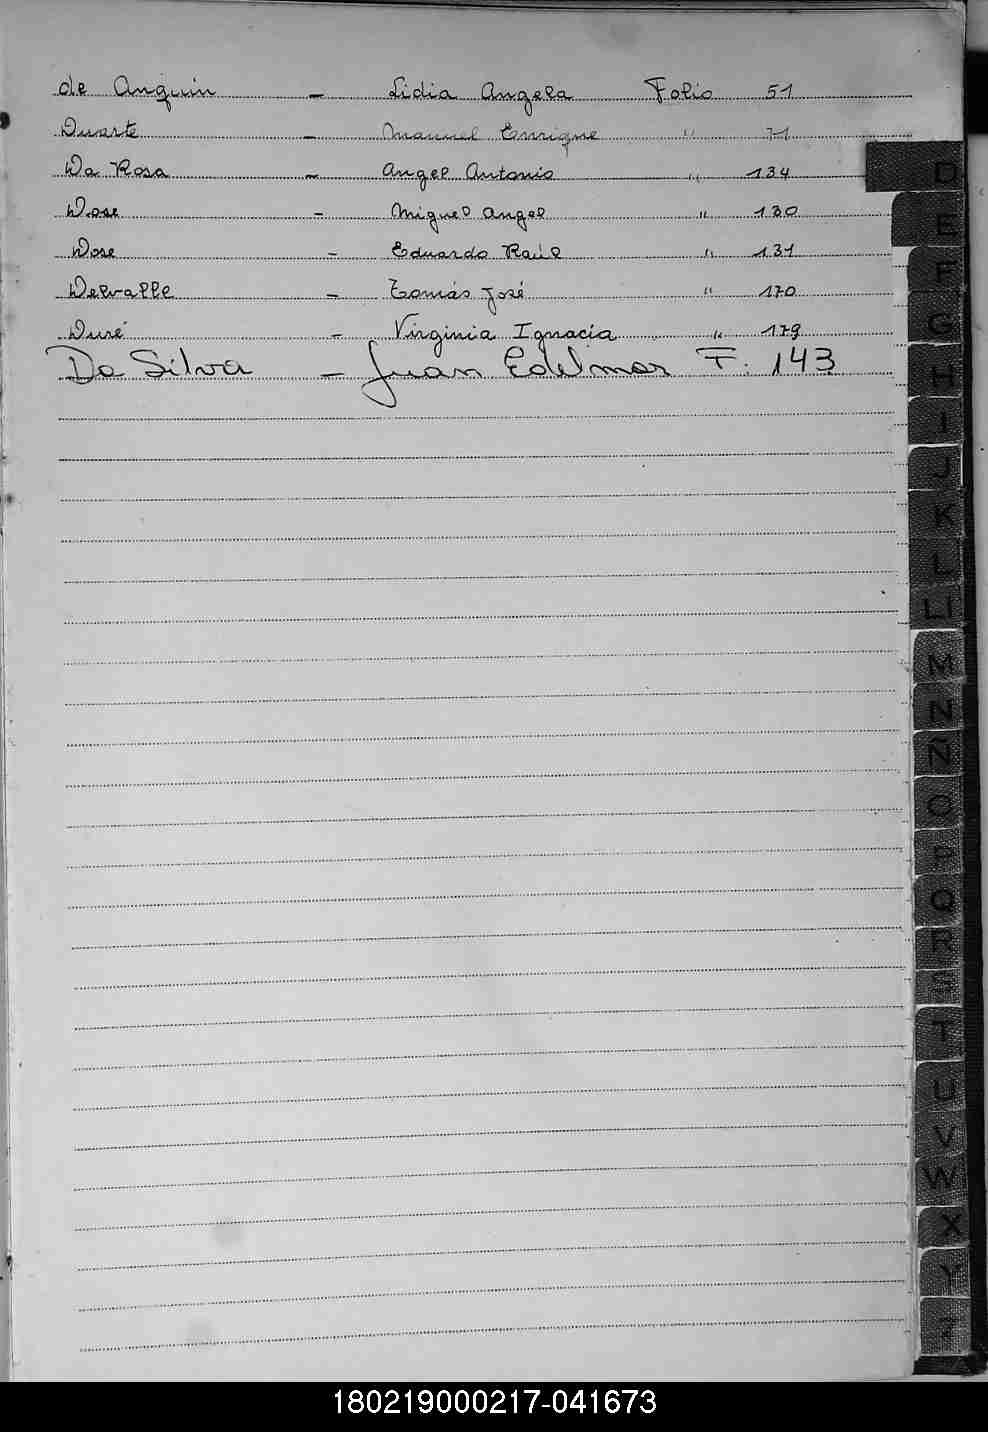 de Anquin - Lidia Angela Folio 51
Duarte - Manuel Enrique " 71
Da Rosa - Angel Antonio " 134
Dose - Miguel Angel " 130
Dose - Eduardo Raúl " 131
Delvalle - Tomás José " 170
Duré - Virginia Ignacia " 179
Da Silva - Juan Edelmar F. 143
D
E
F
G
H
I
J
K
L
LI
M
N
Ñ
O
P
Q
R
S
T
U
V
W
X
Y
Z
180219000217-041673